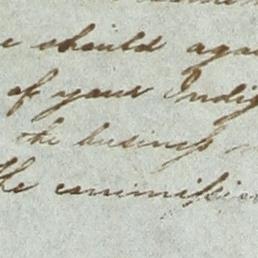 should aga
of your Indi
the business
the commission